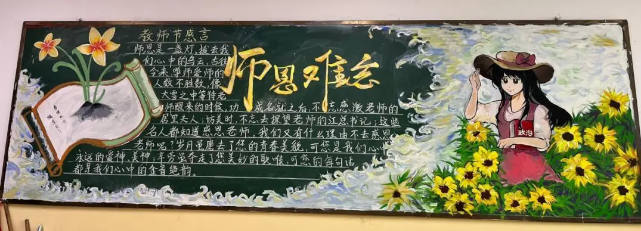 教师节感言
师恩难忘
师恩是一盏灯,拨去我
们心中的乌云,古往
今来,尊师爱师的
人数不胜数,像
大学之中等待老
师醒来的时候,功
成名就之后,不忘感激老师的
居里夫人,访美时,不忘去探望老师的
这些
名人都知道感恩老师,我们又有什么理由不去感恩
老师呢!岁月虽磨去了您的青春美貌,可您是我们心中
永远的爱神,美神,年劳
走了您美妙的歌喉,可您的每句话
都是我们心中的金音绝韵。
政治